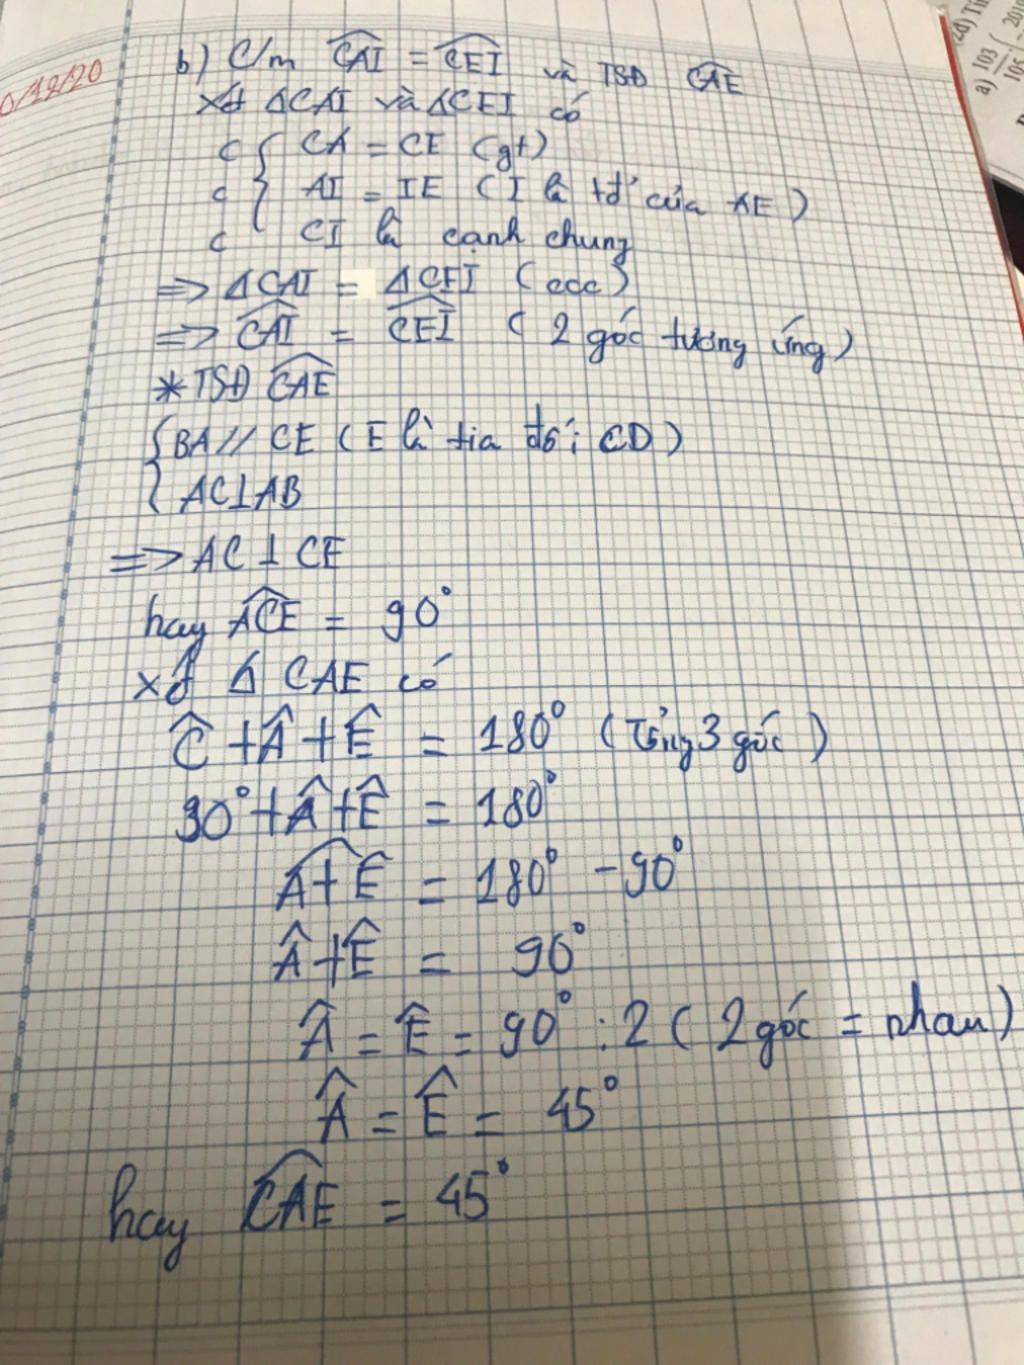 0/12/20
b) C/m CAI = CEI và TSĐ CAE
xđ ΔCAI và ΔCEI có
c { CA = CE (gt)
c AI = IE (I là tđ của AE)
c CI là cạnh chung
=> ΔCAI = ΔCEI (ccc)
=> CAI = CEI (2 góc tương ứng)
* TSĐ CAE
{ BA // CE (E là tia đối CD)
AC⊥AB
=> AC ⊥ CE
hay ACE = 90°
xđ Δ CAE có
Ĉ + Â + Ê = 180° (Tổng 3 góc)
90° + Â + Ê = 180°
A + Ê = 180° - 90°
Â + Ê = 90°
Â = Ê = 90° : 2 (2 góc = nhau)
Â = Ê = 45°
hay CAE = 45°
a) 103
105